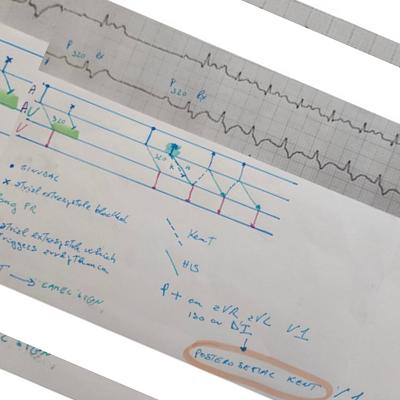 P
320 Rx
P
320 Rx
A
AV
V
320
320
SINUSAL
atrial extrasystole blocked
long PR
atrial extrasystole which
triggers arrhythmia
Kent
HIS
P + on aVR, aVL V1
ISO on DI
POSTEROSEPTAL KENT